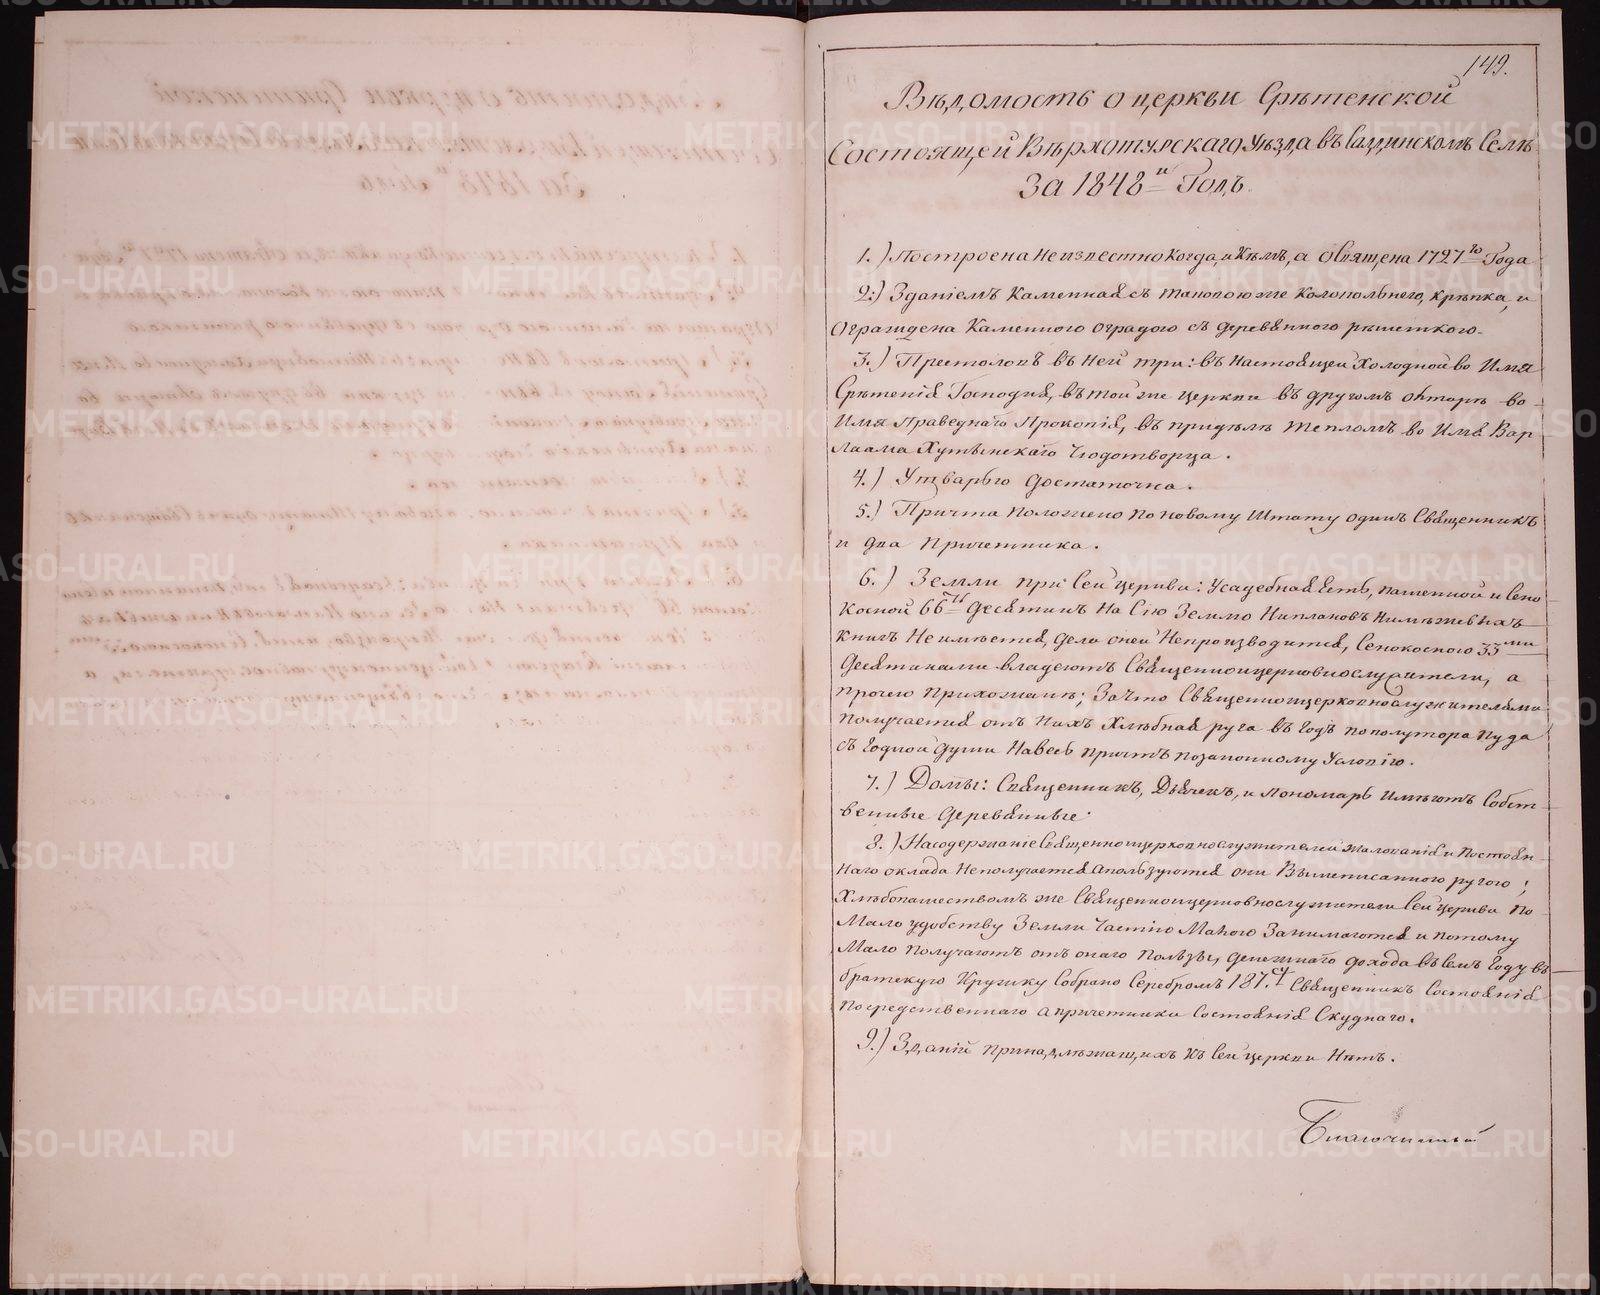 149.
Вѣдомость о церкви Срѣтенской
Состоящей Верхотурскаго Уѣзда въ Салдинскомъ Селѣ
За 1848й Годъ.
1.) Построена Неизвестно Когда, и Кѣмъ, а Освящена 1727го Года
2.) Зданіемъ Каменная съ таковою же Колокольнею, крѣпка, и
Ограждена Каменною оградою съ деревянною рѣшеткою.
3.) Престоловъ въ Ней три: въ Настоящей Холодной во Имя
Срѣтенія Господня, въ той же церкви въ другомъ олтарѣ во
Имя Праведнаго Прокопія, въ придѣлѣ тепломъ во Имя Вар
лаама Хутынскаго Чюдотворца.
4.) Утварью достаточна.
5.) Причта Положено по новому Штату одинъ Священникъ
и два Причетника.
6.) Земли при Сей церкви: Усадебная Есть, пашенной и Сено
косной 66ть десятинъ На Сію Землю Ни плановъ Ни межевыхъ
книгъ Не имѣется, дела о ней Непроизводится, Сенокосною 33ми
десятинами владеютъ Священноицерковнослужители, а
прочею Прихожане; За что Священноицерковнослужителями
Получается отъ Нихъ Хлѣбная руга въ Годъ по полутора Пуда
съ Годной души На весь причтъ по законному Условію.
7.) Домы: Священникъ, Дьячекъ, и Пономарь Имѣютъ Собст
венные деревянные
8.) На содержаніе Священноицерковнослужителей жалованія и Постоян
наго оклада Неполучается а пользуются они Вышеписанною ругою;
Хлѣбопашествомъ же Священноицерковнослужители Сей церкви По
Мало удобству Земли Частію Малою Занимаются и потому
Мало Получаютъ отъ онаго Пользы, денежнаго дохода въ семъ Году въ
братскую Кружку Собрано Серебромъ 187. Священникъ Состоянія
Посредственнаго а причетники Состоянія Скуднаго.
9.) Зданій принадлѣжащихъ къ Сей церкви Нѣтъ.
Благочинный
METRIKI.GASO-URAL.RU